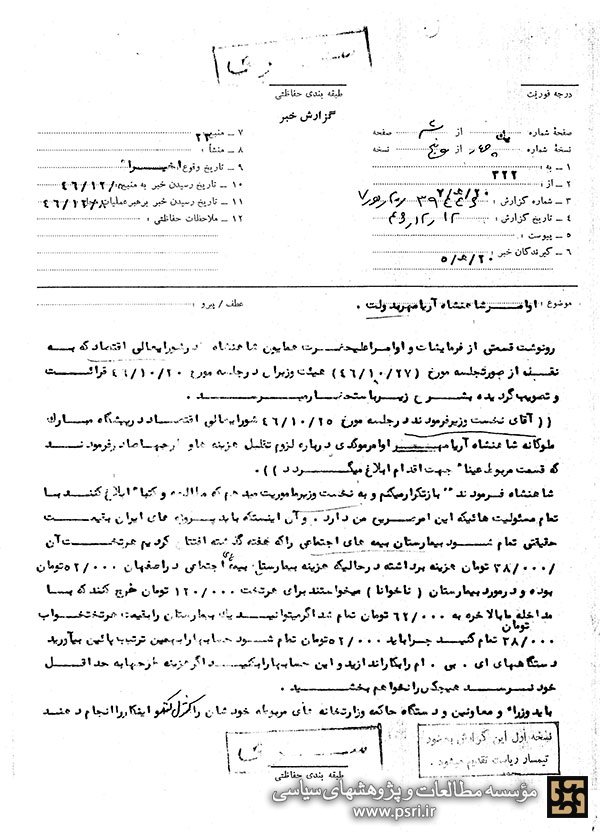 درجه فوریت
طبقه بندی حفاظتی
گزارش خبر
صفحهٔ شماره یک از صفحه
نسخهٔ شماره از پنج نسخه
۱ – به : ۳۲۲
۲ – از : ۲۰/
۳ – شماره گزارش :
۴ – تاریخ گزارش : ۱۲ر۱۲ر
۵ – پیوست :
۶ – گیرندگان خبر :
۷ – منبع : ۲۳
۸ – منشأ :
۹ – تاریخ وقوع اخیرا"
۱۰ – تاریخ رسیدن خبر به منبع ۴۶/۱۲/
۱۱ – تاریخ رسیدن خبر برهبر عملیات ۴۶/۱۲/
۱۲ – ملاحظات حفاظتی :
موضوع : اوامر شاهنشاه آریامهر به دولت .
عطف / پیرو :
رونوشت قسمتی از فرمایشات و اوامر اعلیحضرت همایون شاهنشاه در شورایعالی اقتصاد که به
نقل از صورتجلسه مورخ (۴۶/۱۰/۲۷) هیئت وزیران در جلسه مورخ ۴۶/۱۰/۲۰ قرائت
و تصویب گردیده بشرح زیر باستحضار میرسد .
(( آقای نخست وزیر فرمودند در جلسه مورخ ۴۶/۱۰/۲۵ شورایعالی اقتصاد در پیشگاه مبارک
ملوکانه شاهنشاه آریامهر اوامر موکدی درباره لزوم تقلیل هزینه ها و طرحها صادر فرمودند
که قسمت مربوط عینا" جهت اقدام ابلاغ میگردد )) .
شاهنشاه فرمودند " باز تکرار میکنم و به نخست وزیر ماموریت میدهم که مطالعه و کتبا" ابلاغ کند با
تمام مسئولیت هائیکه این امر سرپیچی من دارد . و آن اینستکه باید پروژه های ایران بقیمت
حقیقتی تمام شود بیمارستان بیمه های اجتماعی را که هفته گذشته افتتاح کردیم هر تخت آن
۳۸/۰۰۰ تومان هزینه برداشته در حالیکه هزینه بیمارستان بیمه های اجتماعی در اصفهان ۵۲/۰۰۰ تومان
بوده و در مورد بیمارستان ( ناخوانا ) میخواستند برای هر تخت ۱۲۰/۰۰۰ تومان خرج کنند که با
مداخله ما بالاخره به ۶۲/۰۰۰ تومان تمام شد اگر میتوانید یک بیمارستان را بقیمت هر تختخواب
۳۸/۰۰۰ تومان تمام کنید چرا باید ۵۲/۰۰۰ تومان تمام شود حسابها را بهمین ترتیب پائین بیاورید
دستگاههای ای . بی . ام را بکار اندازید و این حسابها را بکنید اگر هزینه طرحها به حداقل
خود نرسد هیچکس را نخواهم بخشید .
باید وزراء و معاونین و دستگاه حاکمه وزارتخانه های مربوطه خودشان را کنترل کنند و اینکار را انجام دهند
نسخه اول این گزارش بعرض
تیمسار ریاست تقدیم میشود .
طبقه بندی حفاظتی
مؤسسه مطالعات و پژوهشهای سیاسی
www.psri.ir